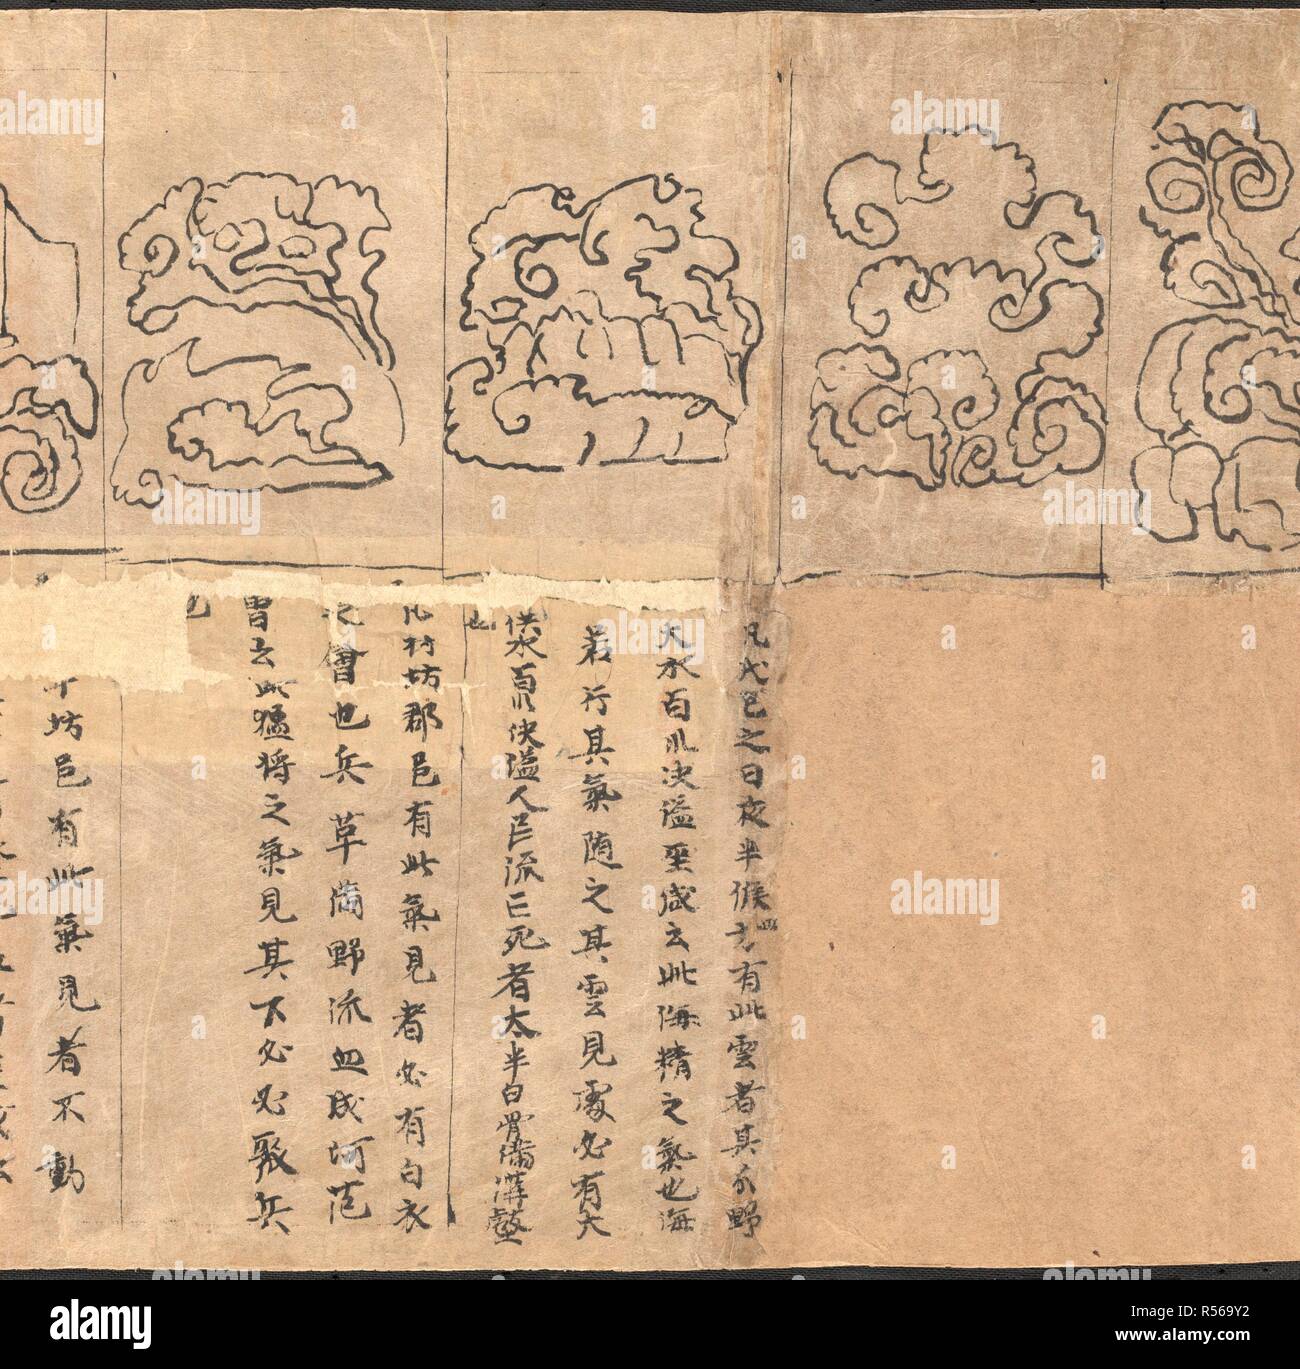 凡戊己之日夜半候四方有此雲者其分野
大水百川決溢至盛云此海精之氣也海
若行其氣隨之其雲見處必有大
供水百川決溢人民流亡死者太半白骨滿溝壑
也
凡村坊郡邑有此氣見者必有白衣
之會也兵草滿野流血成河范
曽云此猛将之氣見其下必必聚兵
也
坊邑有此氣見者不動
alamy
Image ID: R569Y2
www.alamy.com